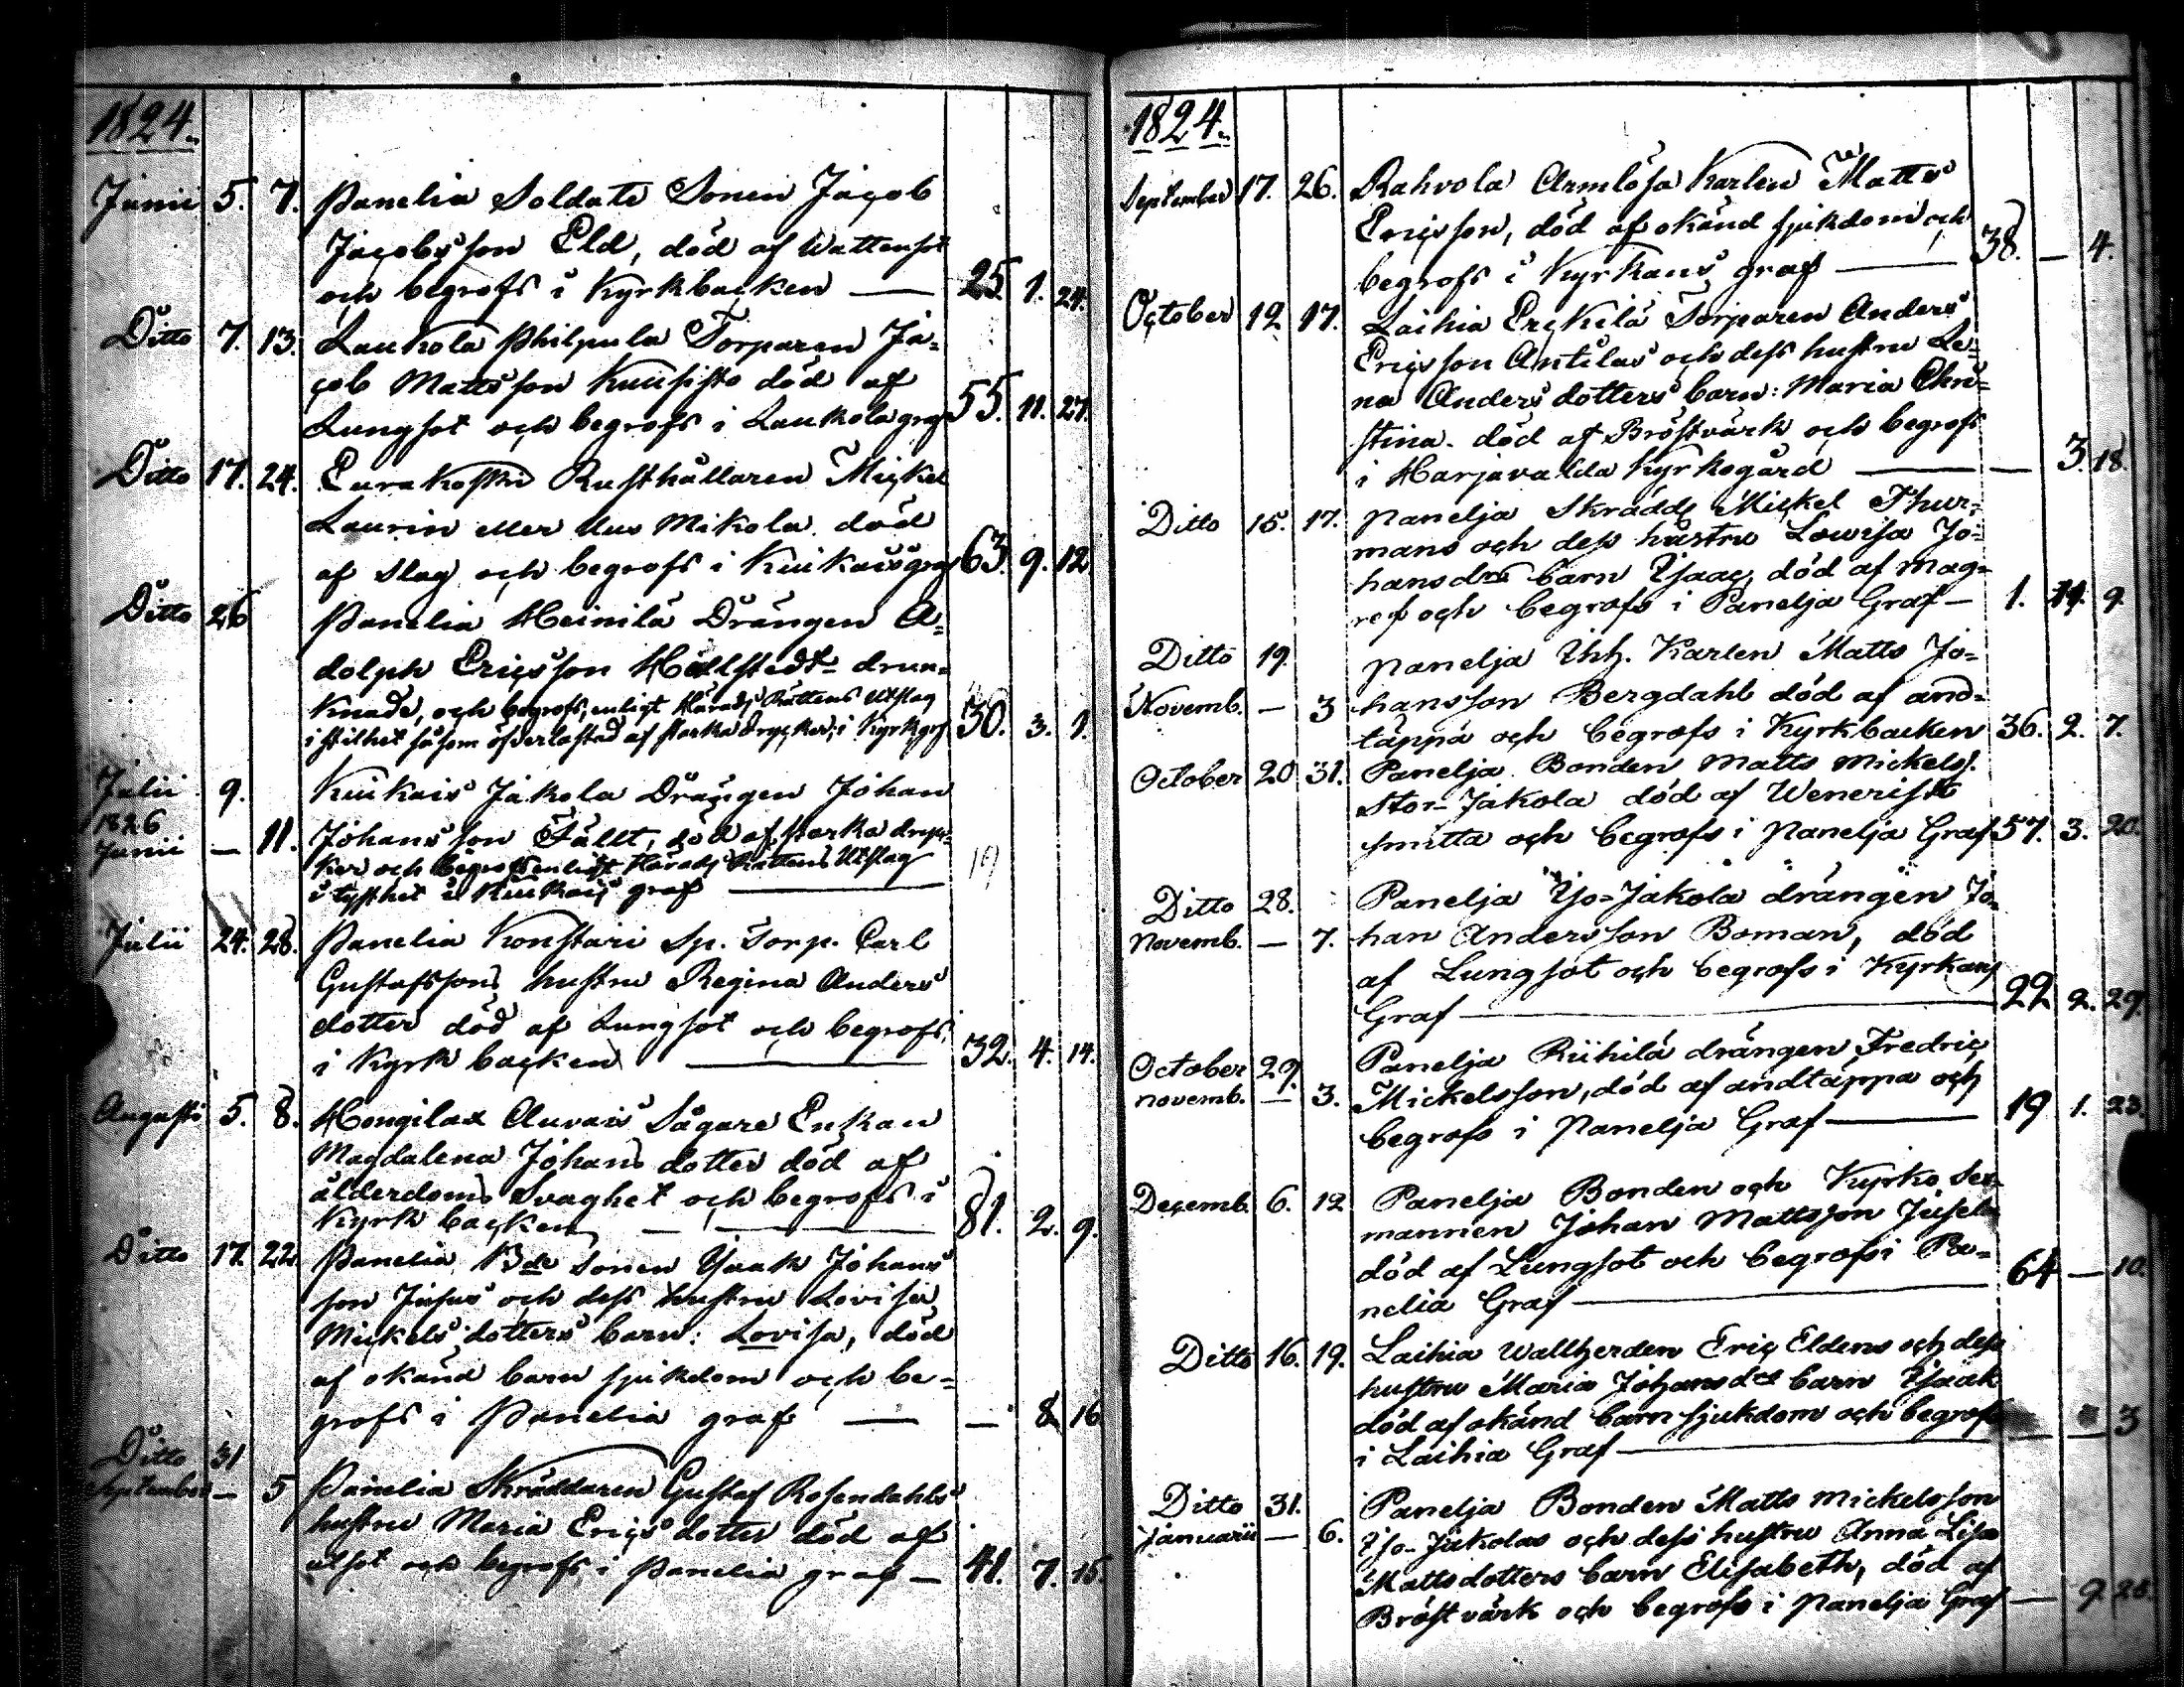 1824.
Junii 5. 7. Panelia Soldats Sonen Jacob
Jacobsson Eld, död af Wattensot
och begrofs i Kyrkbacken — 25. 1. 24.
Ditto 7. 13. Laukola Philpula Torparen Ja-
cob Mattsson Kuusisto död af
Lungsot och begrofs i Laukola graf 55. 11. 27.
Ditto 17. 24. Eurakoski Rusthållaren Mickel
Laurin eller Uus Mikola död
af slag och begrofs i Kiukais graf 63. 9. 12
Ditto 26 Panelia Heinilä Drängen A-
dolph Ericsson Hällstedt drun-
knade, och begrofs, enligt Härads Rättens Utslag
i stilhet såsom öfverlastad af starka drycker, i Kyrk graf 30. 3. 1.
Julii 9. Kiukais Jakola Drängen Johan
1826
Junii — 11. Johansson Fällt, död af starka dryc-
ker och begrofs enligt Härads Rättens Utslag
i tysthet i Kiukais graf — 19
Julii 24. 28. Panelia Konstari Sp. Torp. Carl
Gustafssons hustru Regina Anders
dotter död af Lungsot och begrofs
i Kyrk backen — 32. 4. 14.
Augusti 5. 8. Hongilax Auvais Sågare Enkan
Magdalena Johans dotter död af
ålderdoms Svaghet och begrofs i
Kyrk backen — 81. 2. 9.
Ditto 17. 22. Panelia Bde Sonen Ysaak Johans
son Jusus och dess hustru Lovisa
Mickels dotters barn: Lovisa, död
af okänd barn sjukdom och be-
grofs i Panelia graf — — 8. 16
Ditto 31
September — 5 Panelia Skräddaren Gustaf Rosendahls
hustru Maria Erics dotter död af
utsot och begrofs i Panelia graf — 41. 7. 15.
1824.
September 17. 26. Rahvola Armlösa Karlen Matts
Ericsson, död af okänd sjukdom och
begrofs i Kyrkans graf — 38. — 4.
October 12 17. Laihia Erckilä Torparen Anders
Ericsson Antilas och dess hustru Le-
na Anders dotters barn: Maria Chri-
stina. död af Bröstvärk och begrofs
i Harjavalda Kyrkogård — — 3. 18.
Ditto 15. 17. Panelja Skrädd Mickel Thur-
mans och dess hustru Lowisa Jo-
hansdrs barn Ysaac, död af mag-
ref och begrofs i Panelja Graf — 1. 11. 9
Ditto 19. Panelja Inh. Karlen Matts Jo-
Novemb. — 3 hansson Bergdahl död af and-
täppa och begrofs i Kyrkbacken 36. 2. 7.
October 20 31. Panelja Bonden Matts Mickels.
Stor-Jakola död af Wenerisk
smitta och begrofs i Panelja Graf 57. 3. 20.
Ditto 28. Panelja Yso-Jakola drängen Jo-
Novemb. — 7. han Andersson Boman, död
af Lungsot och begrofs i Kyrkans
Graf — 22 2. 29.
October 29. Panelja Riihilä drängen Fredric
Novemb. — 3. Mickelsson, död af andtäppa och
begrofs i Panelja Graf — 19 1. 23.
Decemb. 6. 12 Panelja Bonden och Kyrko Sex-
mannen Johan Mattsson Jusela
död af Lungsot och begrofs i Pa-
nelia Graf — 64 — 10.
Ditto 16. 19. Laihia Wallherden Eric Eldens och dess
hustru Maria Johansdrs barn Ysaak
död af okänd barnsjukdom och begrofs
i Laihia Graf — — — 3
Ditto 31. Panelja Bonden Matts Mickelsson
Januarii — 6. Yso-Jakolas och dess hustru Anna Lisa
Mattsdotters barn Elisabeth, död af
Bröstvärk och begrofs i Panelja Graf — 9 25.